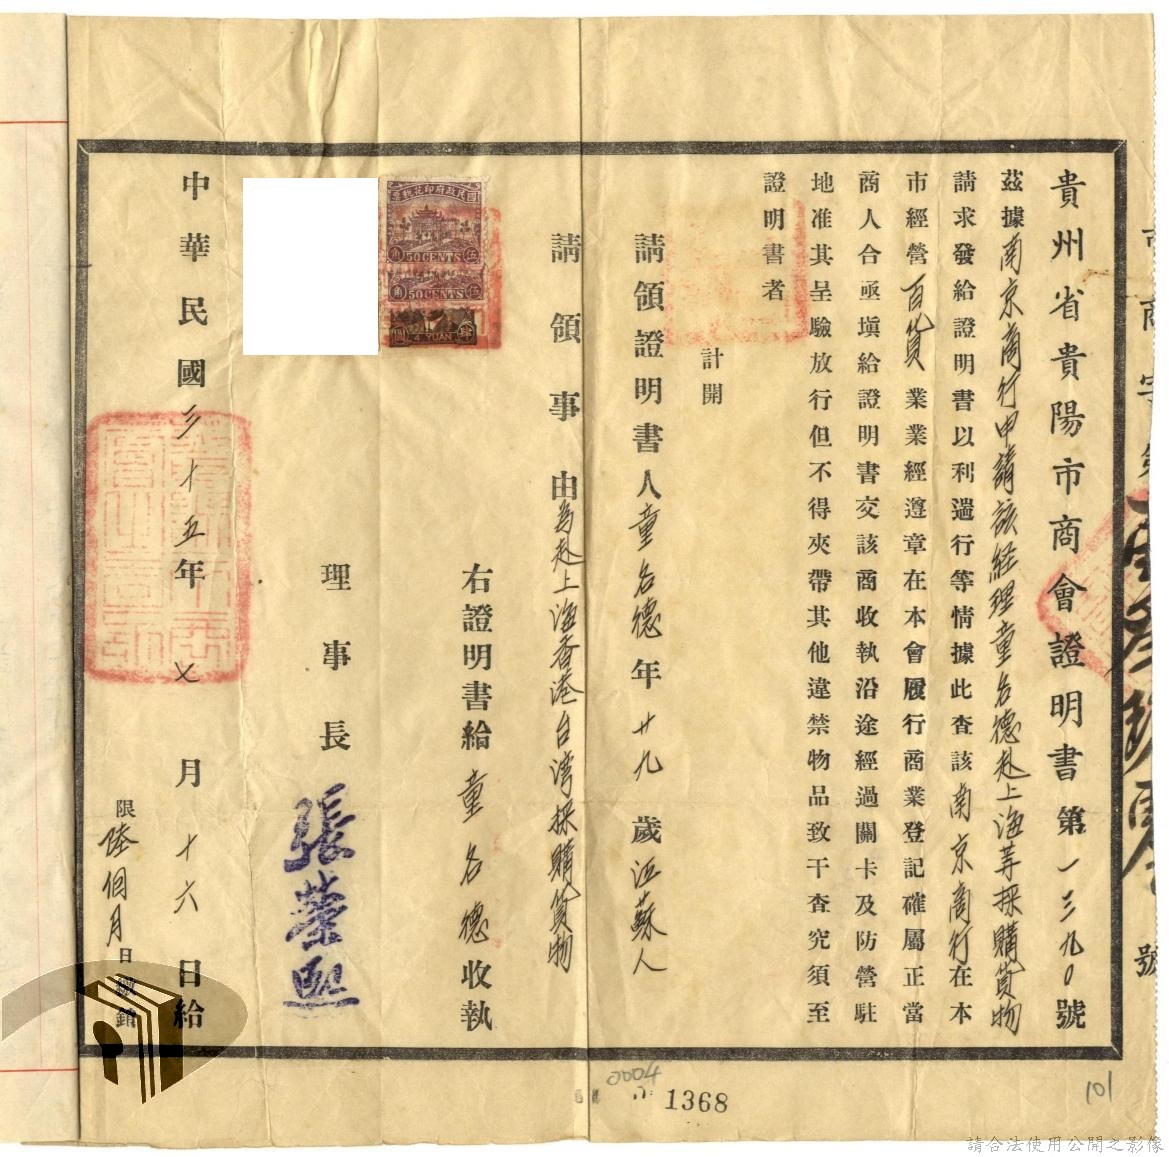 貴州省貴陽市商會證明書第一三九0號
茲據南京商行申請該經理童名德赴上海等採購貨物
請求發給證明書以利遄行等情據此查該南京商行在本
市經營百貨業業經遵章在本會履行商業登記確屬正當
商人合亟塡給證明書交該商收執沿途經過關卡及防營駐
地准其呈驗放行但不得夾帶其他違禁物品致干查究須至
證明書者
計開
請領證明書人童名德年廿九歲江蘇人
請領事由為赴上海香港台湾採購貨物
右證明書給童名德收執
國民政府印花稅票
伍角
50 CENTS
伍角
50 CENTS
肆圓
4 YUAN
理事長 張榮熙
中華民國三十五年七月十六日給
限陸個月日繳銷
商字第
號
0004
1368
101
請合法使用公開之影像